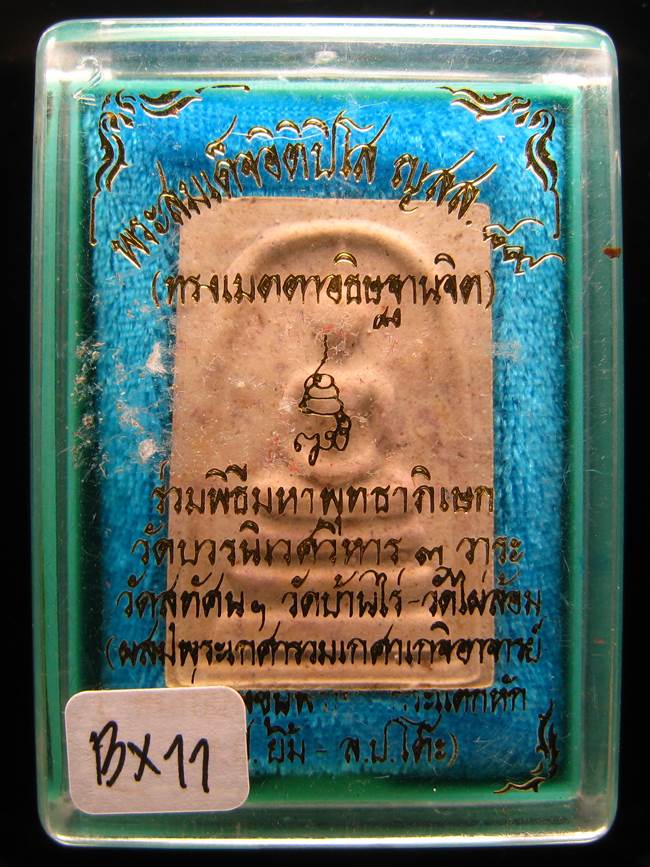 พระสมเด็จอิติปิโส ญสส. ๘๘
(ทรงเมตตาอธิษฐานจิต)
ร่วมพิธีมหาพุทธาภิเษก
วัดบวรนิเวศวิหาร ๓ วาระ
วัดสุทัศนฯ วัดบ้านไร่-วัดไผ่ล้อม
(ผสมพระเกศารวมเกศาเกจิอาจารย์
ระแตกหัก
ยิ้ม - ล.ป.โต๊ะ)
BX11